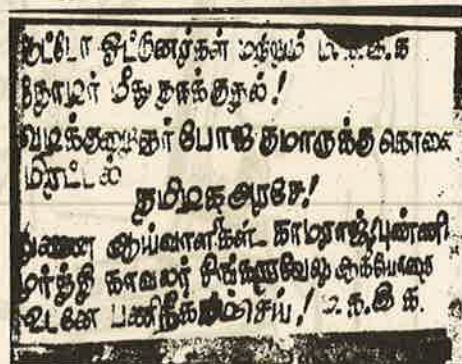 ஆட்டோ ஓட்டுனர்கள் மற்றும் ம.க.இ.க
தோழர் மீது தாக்குதல்!
வழக்குரைஞர் போஜ குமாருக்கு கொலை
மிரட்டல்
தமிழக அரசே!
துணை ஆய்வாளர்கள் காமராஜ், புண்ணிய
மூர்த்தி காவலர் சிங்காரவேலு ஆகியோரை
உடனே பணிநீக்கம் செய்!